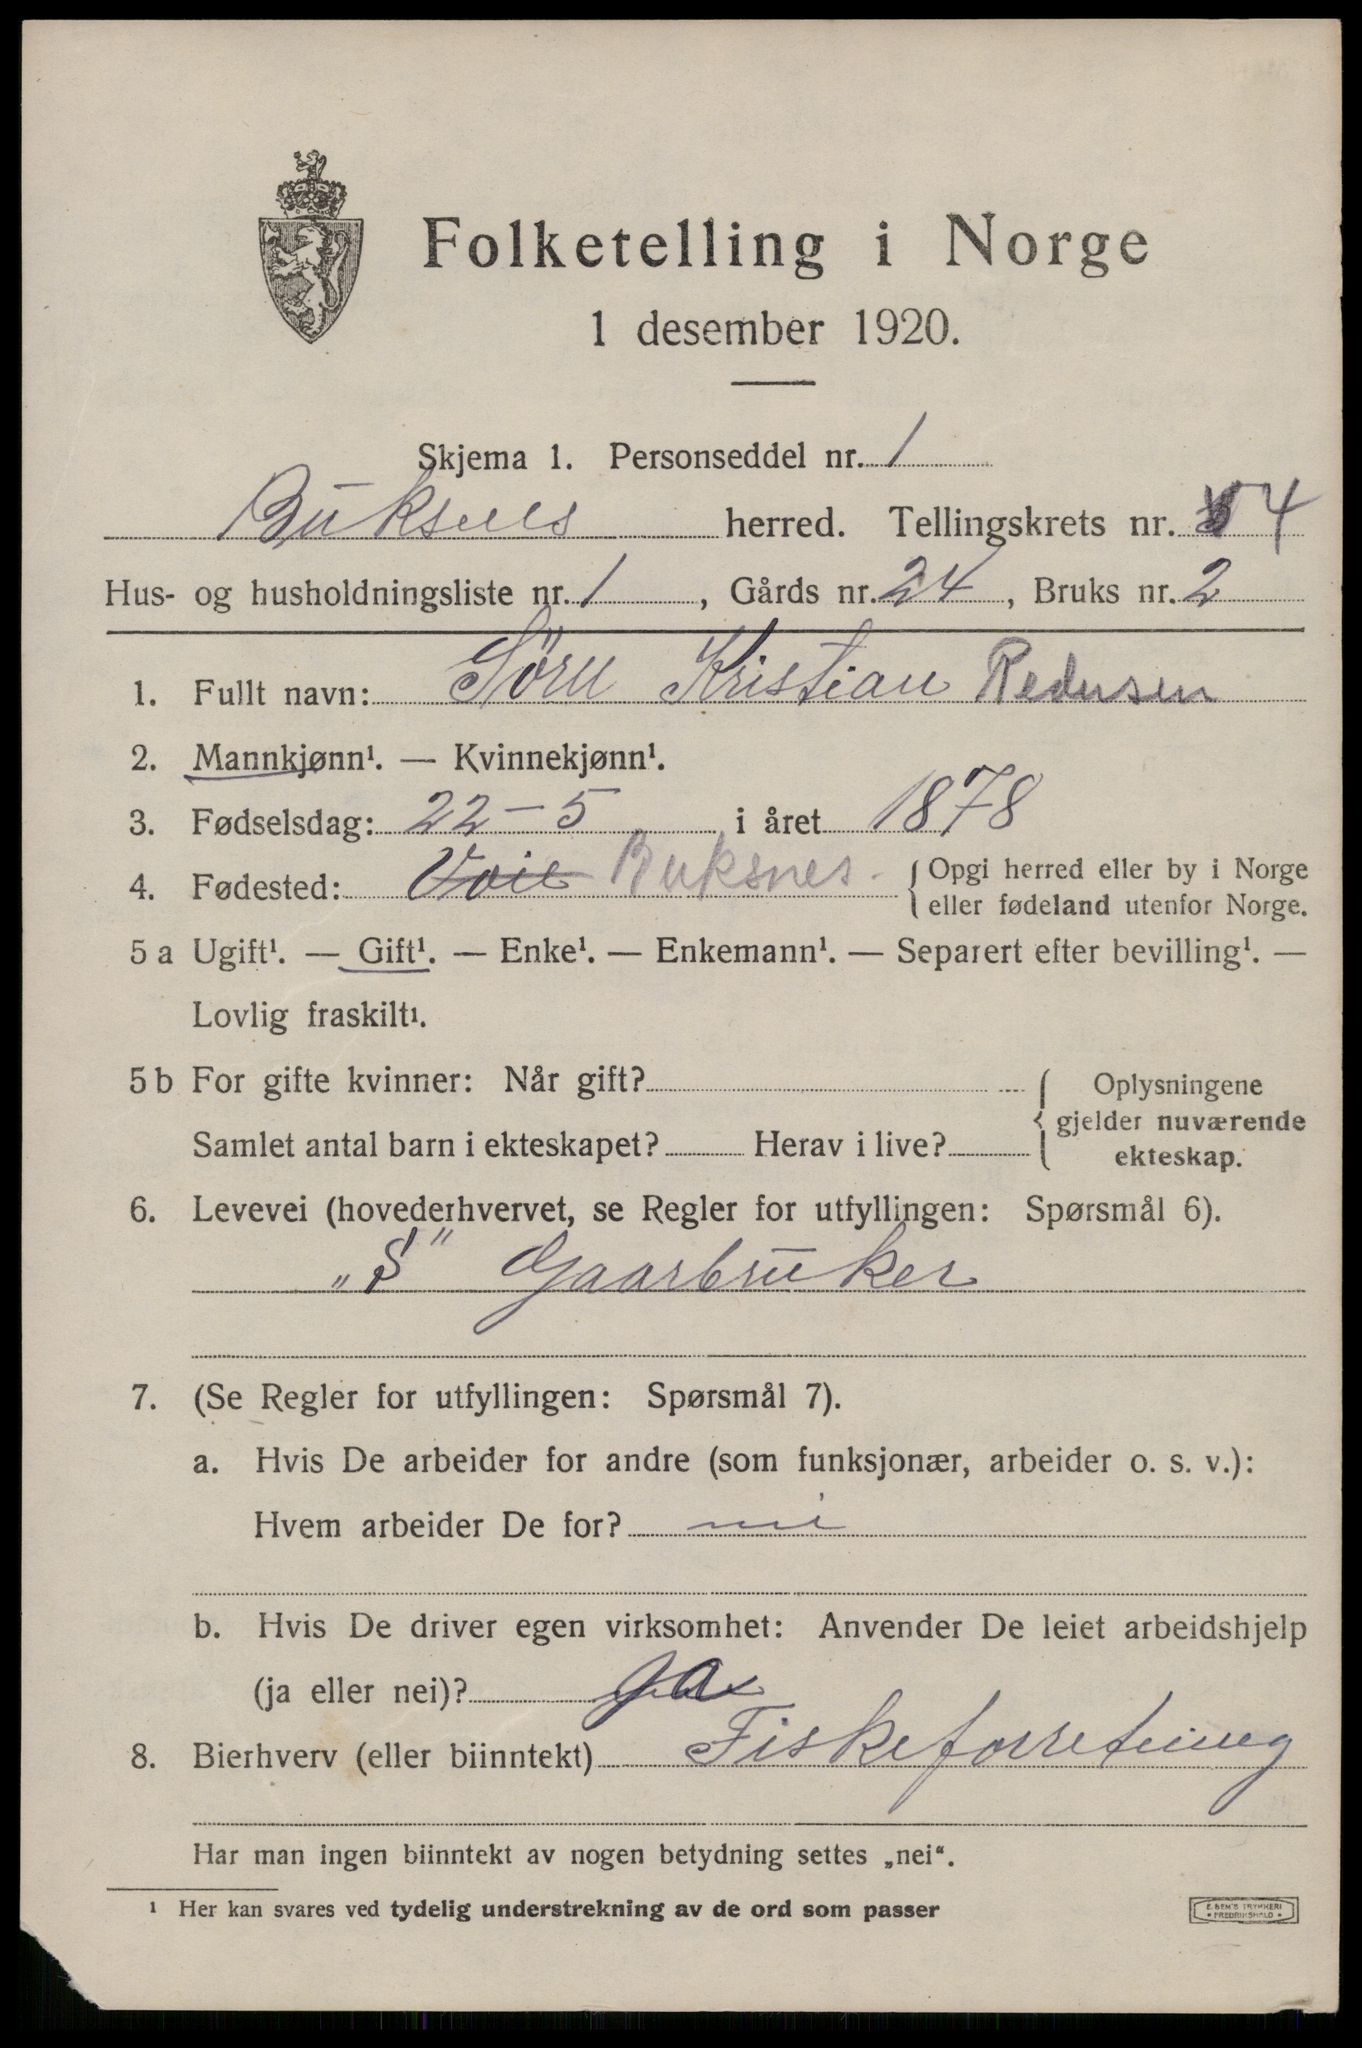 Folketelling i Norge
1 desember 1920.
Skjema 1. Personseddel nr. 1
Buksnes herred. Tellingskrets nr. 4
Hus- og husholdningsliste nr. 1, Gårds nr. 24, Bruks nr. 2
1. Fullt navn: Sörn Kristian Pedersen
2. Mannkjønn¹. — Kvinnekjønn¹.
3. Fødselsdag: 22-5 i året 1878
4. Fødested: Voie Buksnes. { Opgi herred eller by i Norge
eller fødeland utenfor Norge.
5 a Ugift¹. — Gift¹. — Enke¹. — Enkemann¹. — Separert efter bevilling¹. —
Lovlig fraskilt¹.
5 b For gifte kvinner: Når gift? { Oplysningene
gjelder nuværende
Samlet antal barn i ekteskapet? Herav i live?
ekteskap.
6. Levevei (hovederhvervet, se Regler for utfyllingen: Spørsmål 6).
„S" Gaarbruker
7. (Se Regler for utfyllingen: Spørsmål 7).
a. Hvis De arbeider for andre (som funksjonær, arbeider o. s. v.):
Hvem arbeider De for?
b. Hvis De driver egen virksomhet: Anvender De leiet arbeidshjelp
(ja eller nei)? ja
8. Bierhverv (eller biinntekt) Fiskeforretning
Har man ingen biinntekt av nogen betydning settes „nei".
¹ Her kan svares ved tydelig understrekning av de ord som passer
E. SEM'S TRYKKERI
• FREDRIKSHALD •